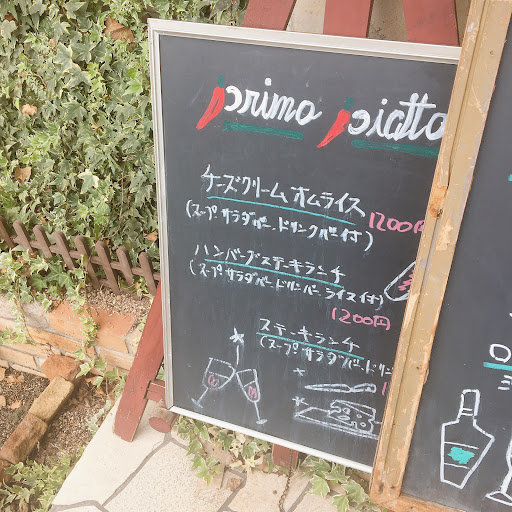 primo piatto
チーズクリームオムライス
1200円
(スープ サラダバー、ドリンクバー付)
ハンバーグステーキランチ
(スープ サラダバー、ドリンクバー、ライス付)
1200円
ステーキランチ
(スープ サラダバー、ドリン